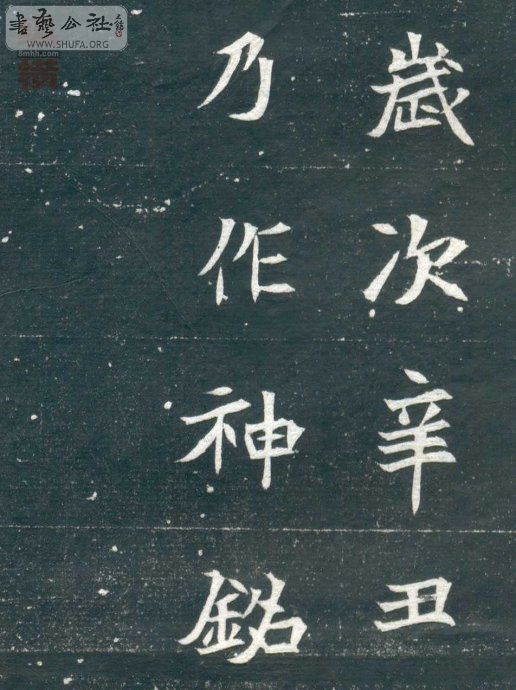 歲次辛丑
乃作神銘
書藝公社
WWW.SHUFA.ORG
8mhh.com